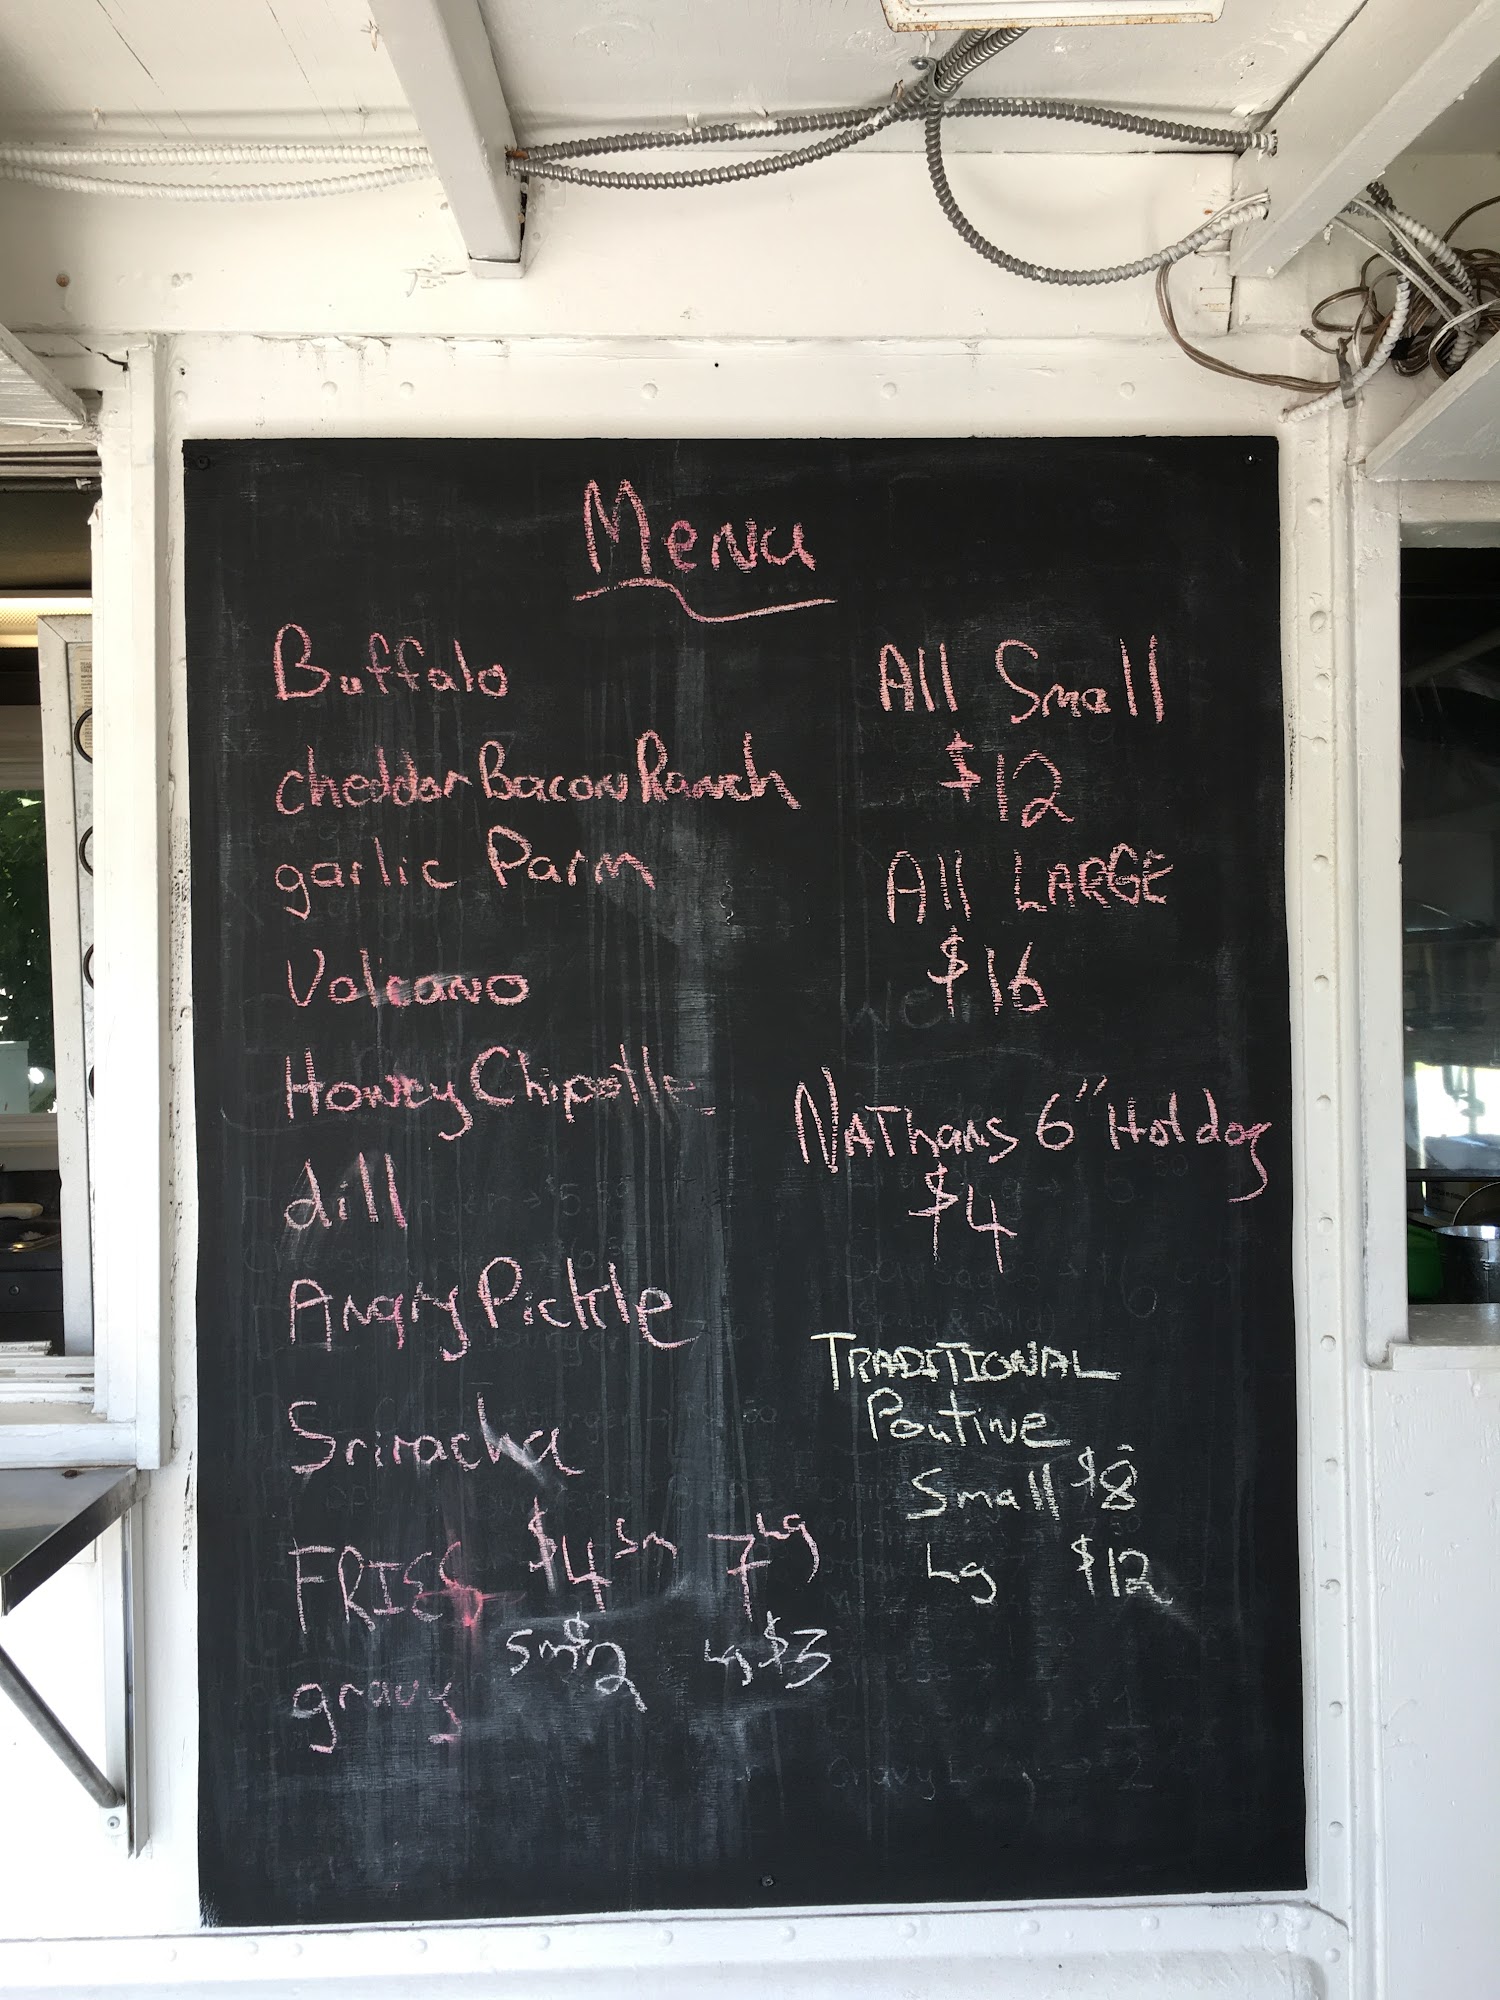 Menu
Buffalo
cheddar Bacon Ranch
garlic Parm
Volcano
Honey Chipotle
dill
Angry Pickle
Sriracha
FRIES $4 Sm 7 Lg
Sm $2 Lg $3
gravy
All Small
$12
All LARGE
$16
NAThans 6" Hot dog
$4
TRADITIONAL
Poutine
Small $8
Lg $12